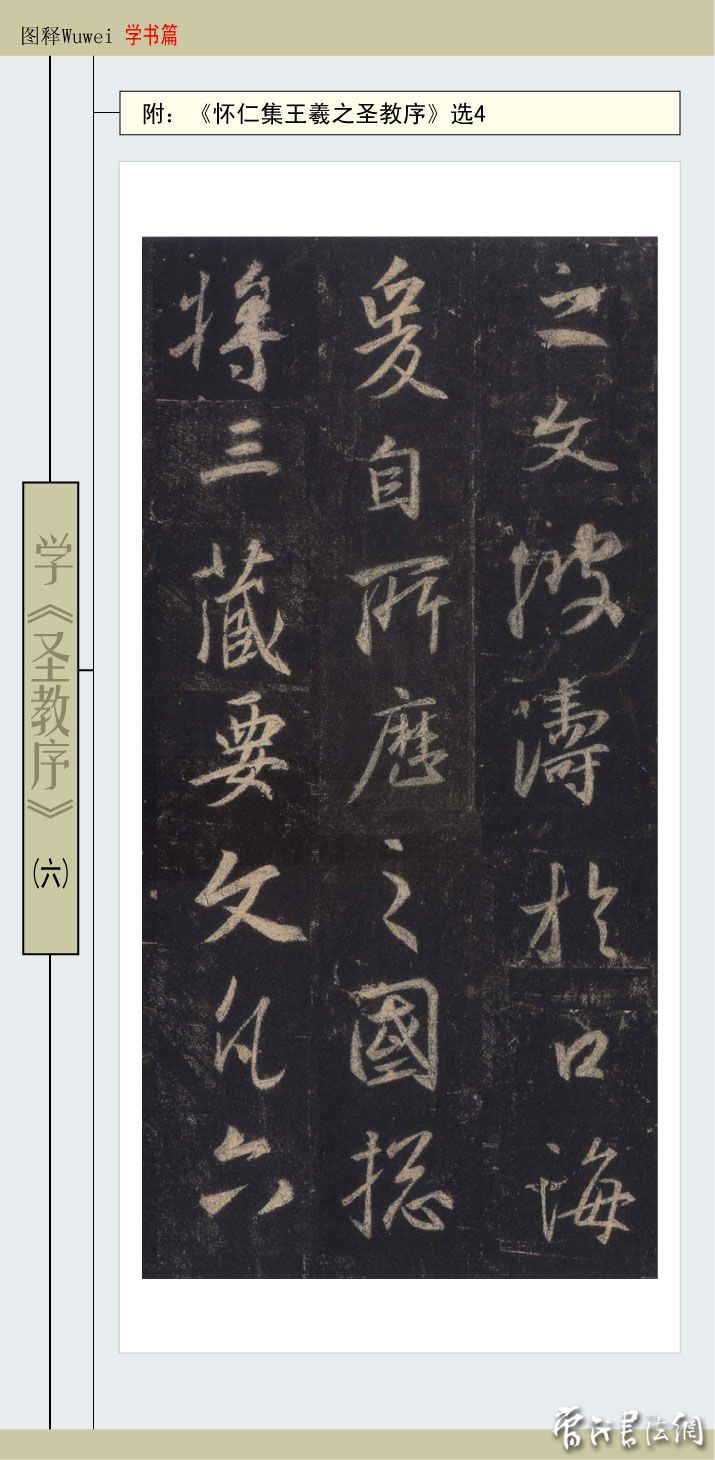 图释Wuwei 学书篇
附：《怀仁集王羲之圣教序》选4
学《圣教序》(六)
之文波濤於口海
爰自所歷之國揔
將三藏要文凡六